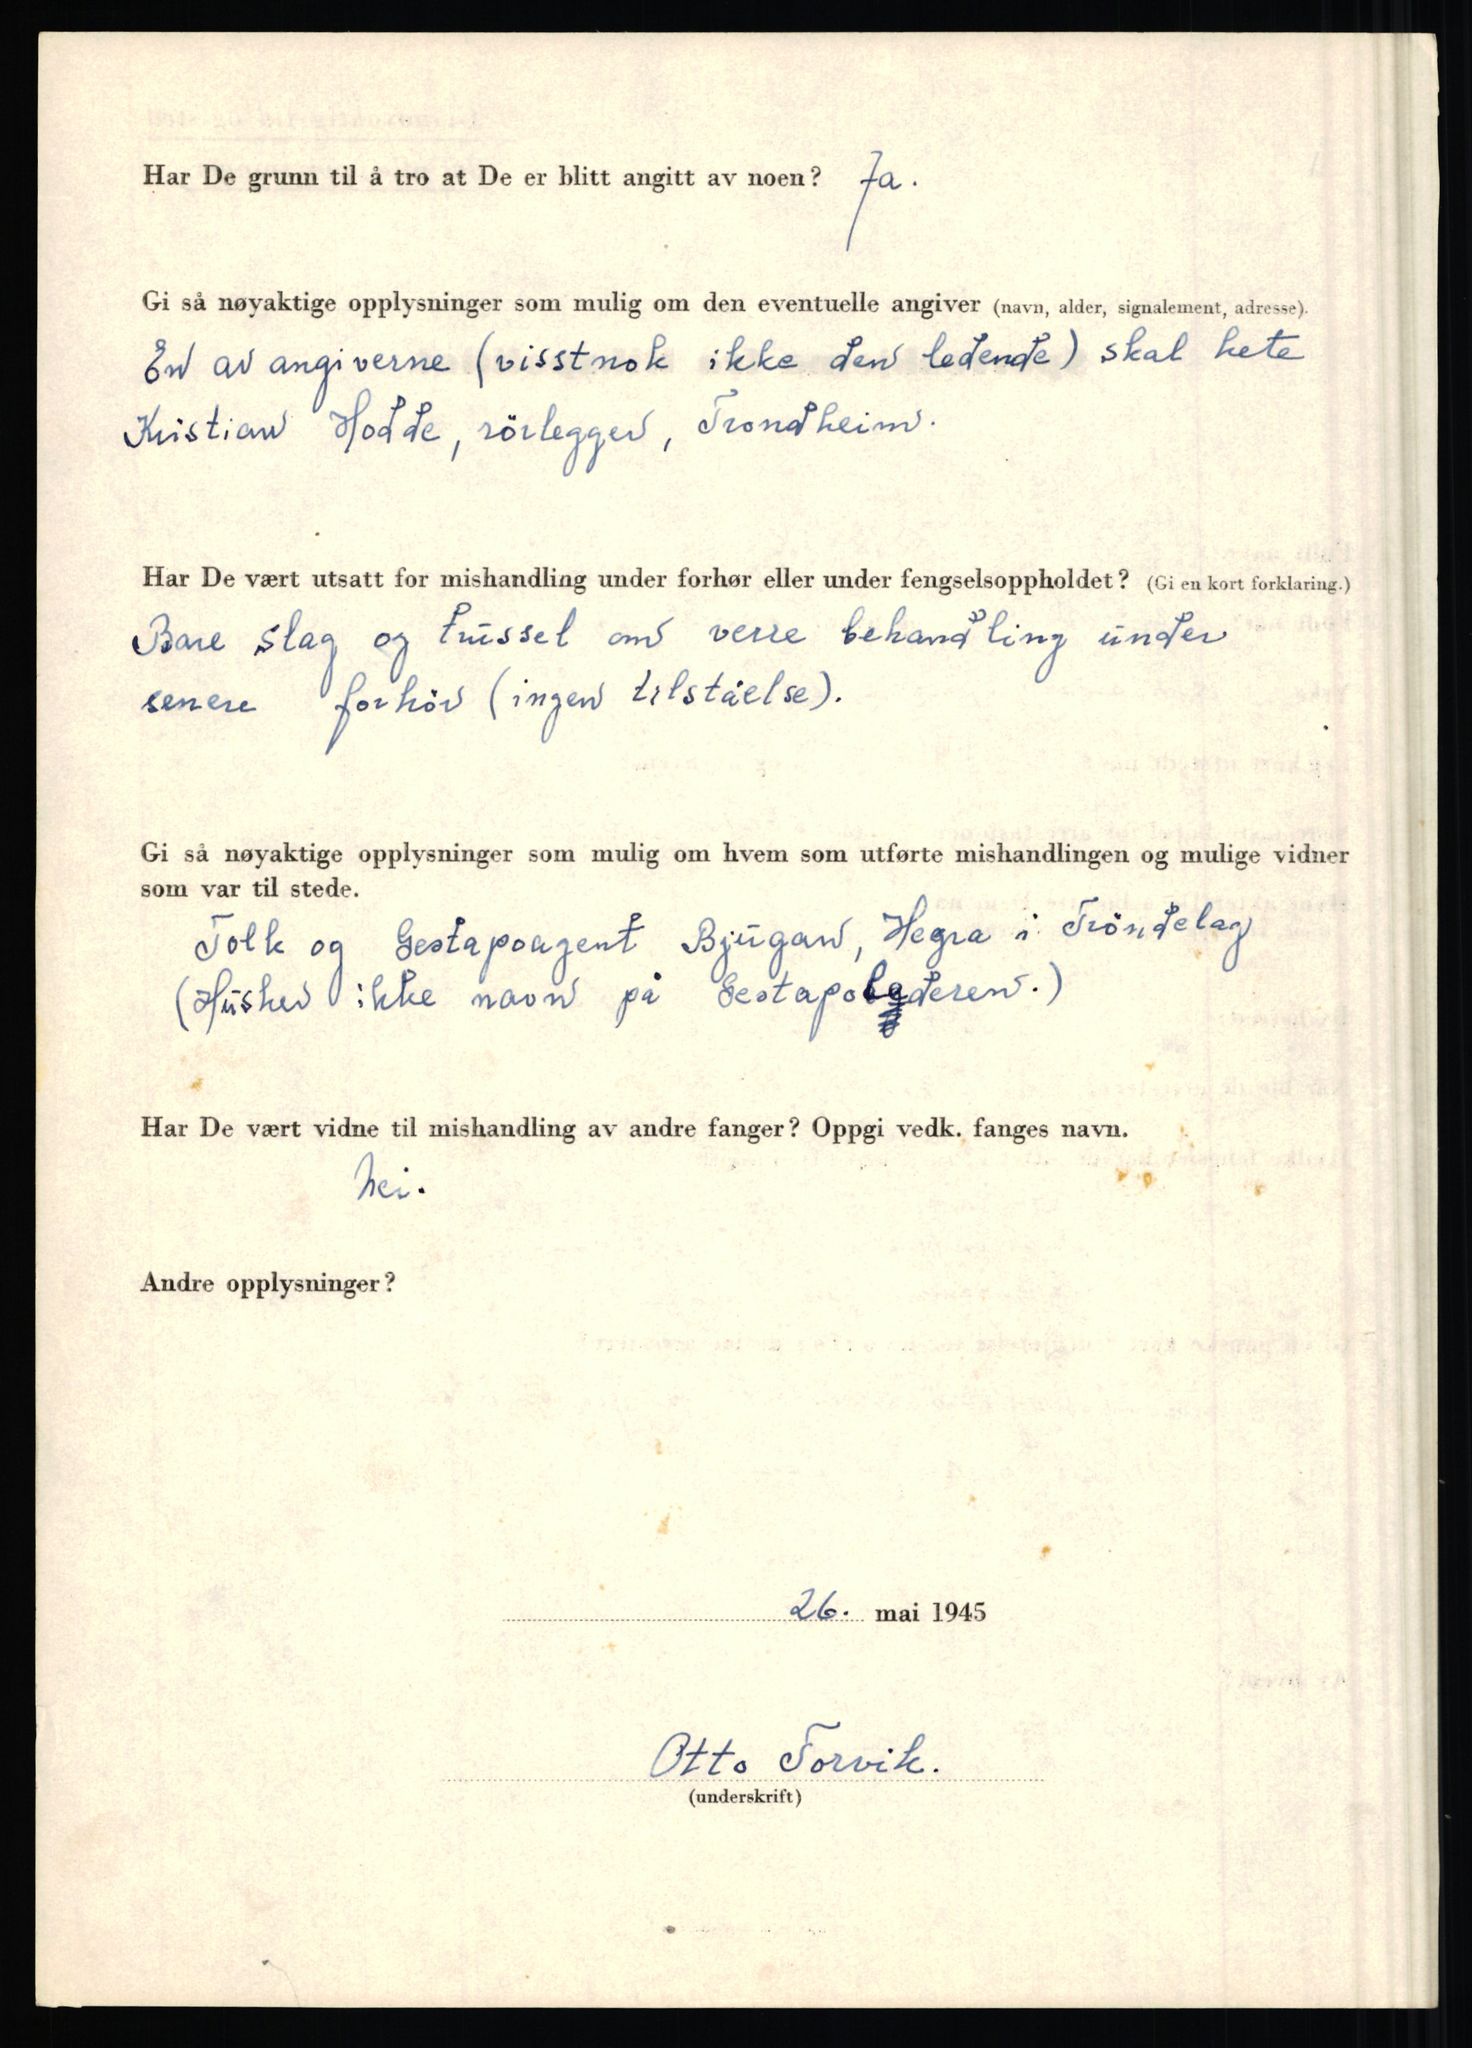 Har De grunn til å tro at De er blitt angitt av noen? Ja.
Gi så nøyaktige opplysninger som mulig om den eventuelle angiver (navn, alder, signalement, adresse).
En av angiverne (visstnok ikke den ledende) skal hete
Kristian Hodde, rörlegger, Trondheim.
Har De vært utsatt for mishandling under forhør eller under fengselsoppholdet? (Gi en kort forklaring.)
Bare slag og trussel om verre behandling under
senere forhör (ingen tilståelse).
Gi så nøyaktige opplysninger som mulig om hvem som utførte mishandlingen og mulige vidner
som var til stede.
Tolk og Gestapoagent Bjugan, Hegra i Tröndelag
(Husker ikke navn på Gestapolederen.)
Har De vært vidne til mishandling av andre fanger? Oppgi vedk. fanges navn.
Nei.
Andre opplysninger?
26. mai 1945
Otto Torvik.
(underskrift)